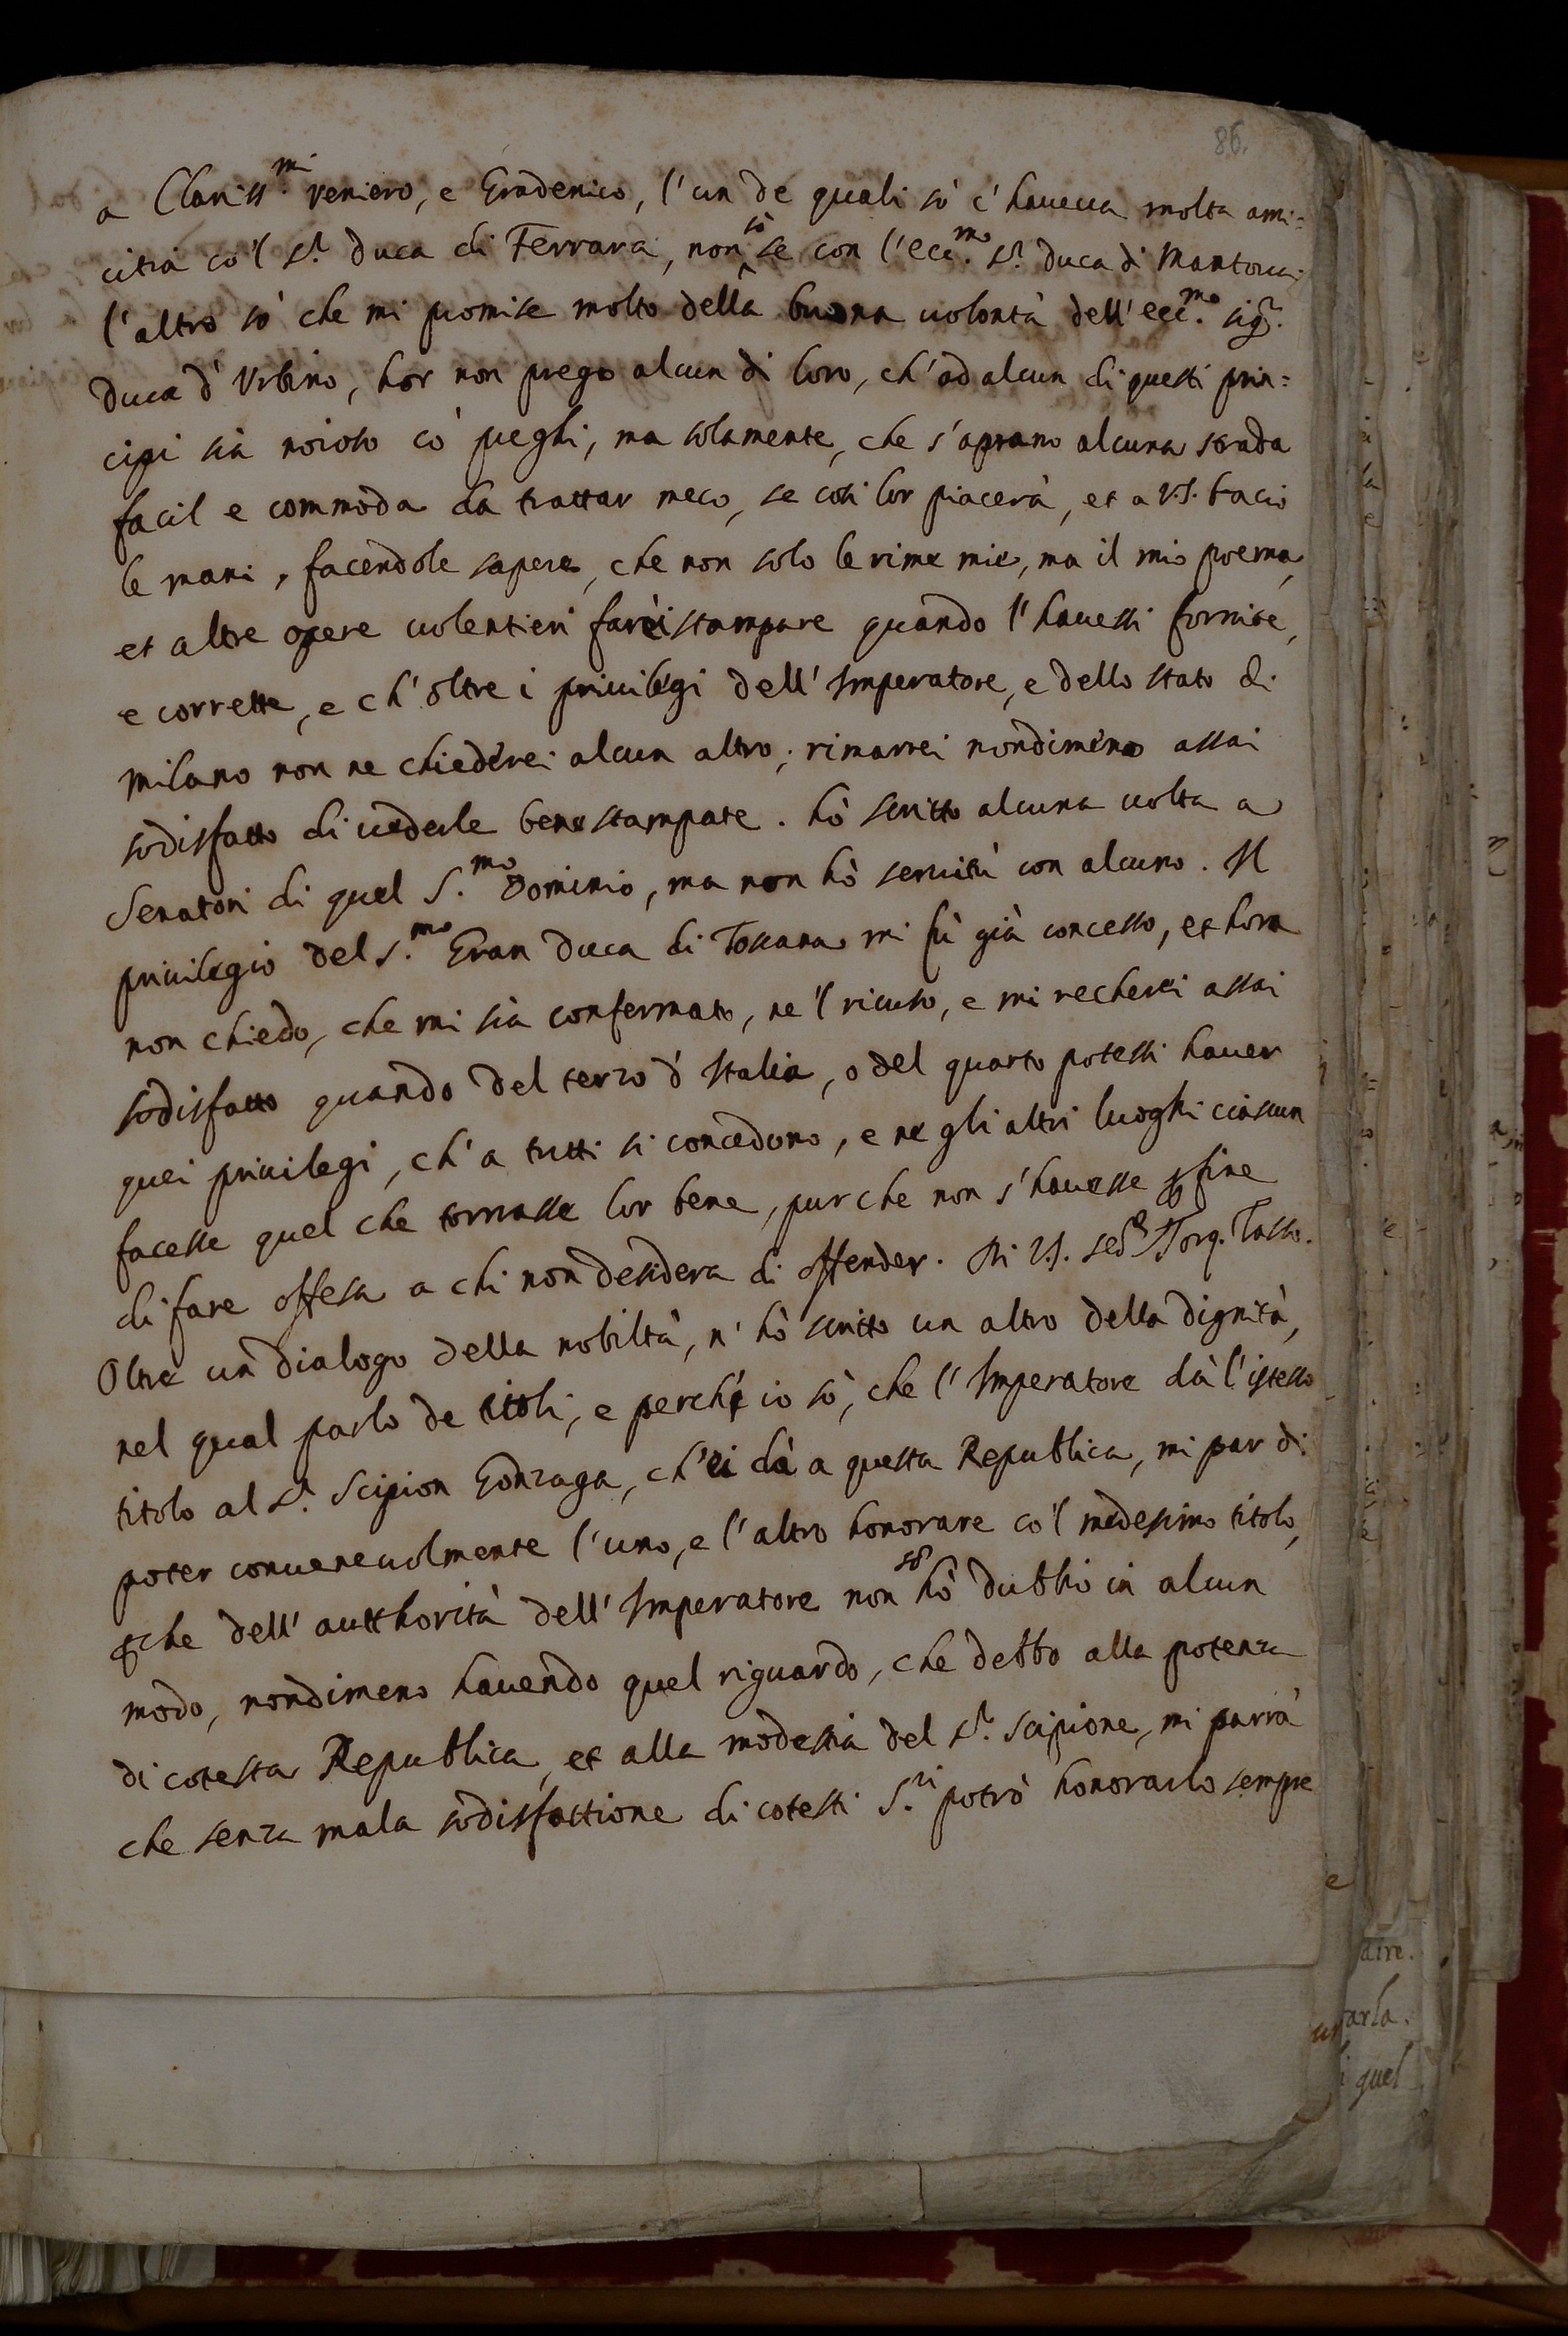 86.
a Clariss.mi Veniero, e Gradenico, l'un de quali sò c'haueua molta ami=
citia co'l S.r Duca di Ferrara, non sò se con l'ecc.mo S.r Duca di Mantoua.
l'altro sò che mi promise molto della buona uolontà dell'ecc.mo sig.r
Duca d'Vrbino, hor non prego alcun di loro, ch'ad alcun di questi prin=
cipi sia noioso co' preghi, ma solamente, che s'aprano alcuna strada
facil e commoda da trattar meco, se cosi lor piacerà, et a V.S. bacio
le mani, facendole sapere, che non solo le rime mie, ma il mio poema,
et altre opere uolentieri farei stampare quando l'hauessi fornite,
e corrette, e ch'oltre i priuilegi dell'Imperatore, e dello stato di
Milano non ne chiederei alcun altro; rimarrei nondimeno assai
sodisfatto di uederle bene stampate. hò scritto alcuna uolta a
Senatori di quel S.mo Dominio, ma non hò seruitù con alcuno. Il
priuilegio del S.mo Gran Duca di Toscana mi fù già concesso, et hora
non chiedo, che mi sia confermato, ne'l ricuso, e mi recherei assai
sodisfatto quando del terzo d'Italia, o del quarto potessi hauer
quei priuilegi, ch'a tutti si concedono, e ne gli altri luoghi ciascun
facesse quel che tornasse lor bene, pur che non s'hauesse fine
di fare offesa a chi non desidera di offender. Di V.S. Torq. Tasso.
Oltre un dialogo della nobiltà, n'hò scritto un altro della dignità,
nel qual parlo de titoli, e perché io sò, che l'Imperatore dà l'istesso
titolo al S.r Scipion Gonzaga, ch'ei dà a questa Republica, mi par di
poter conueneuolmente l'uno, e l'altro honorare co'l medesimo titolo,
che dell'autthorità dell'Imperatore non hò dubbio in alcun
modo, nondimeno hauendo quel riguardo, che debbo alla potenza
di cotesta Republica, et alla modestia del S.r Scipione, mi parrà
che senza mala sodisfattione di cotesti S.ri potrò honorarlo sempre
dire.
farla.
quel